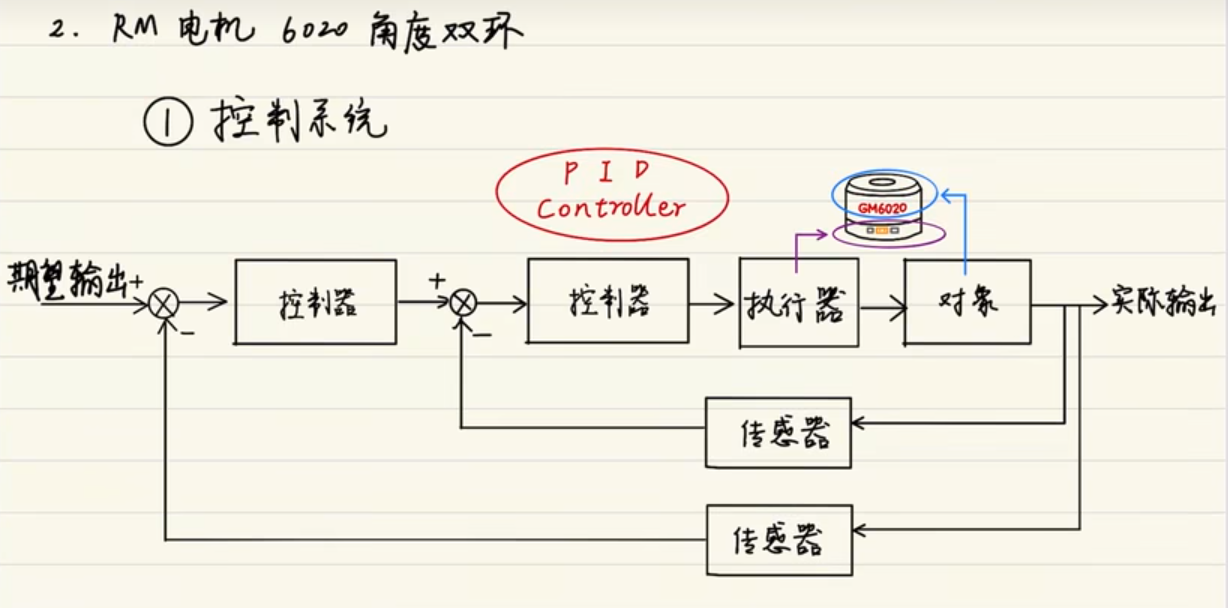 2. RM 电机 6020 角度双环
① 控制系统
PID
Controller
GM6020
期望输出 + 控制器 + 控制器 执行器 对象 实际输出
− −
传感器
传感器